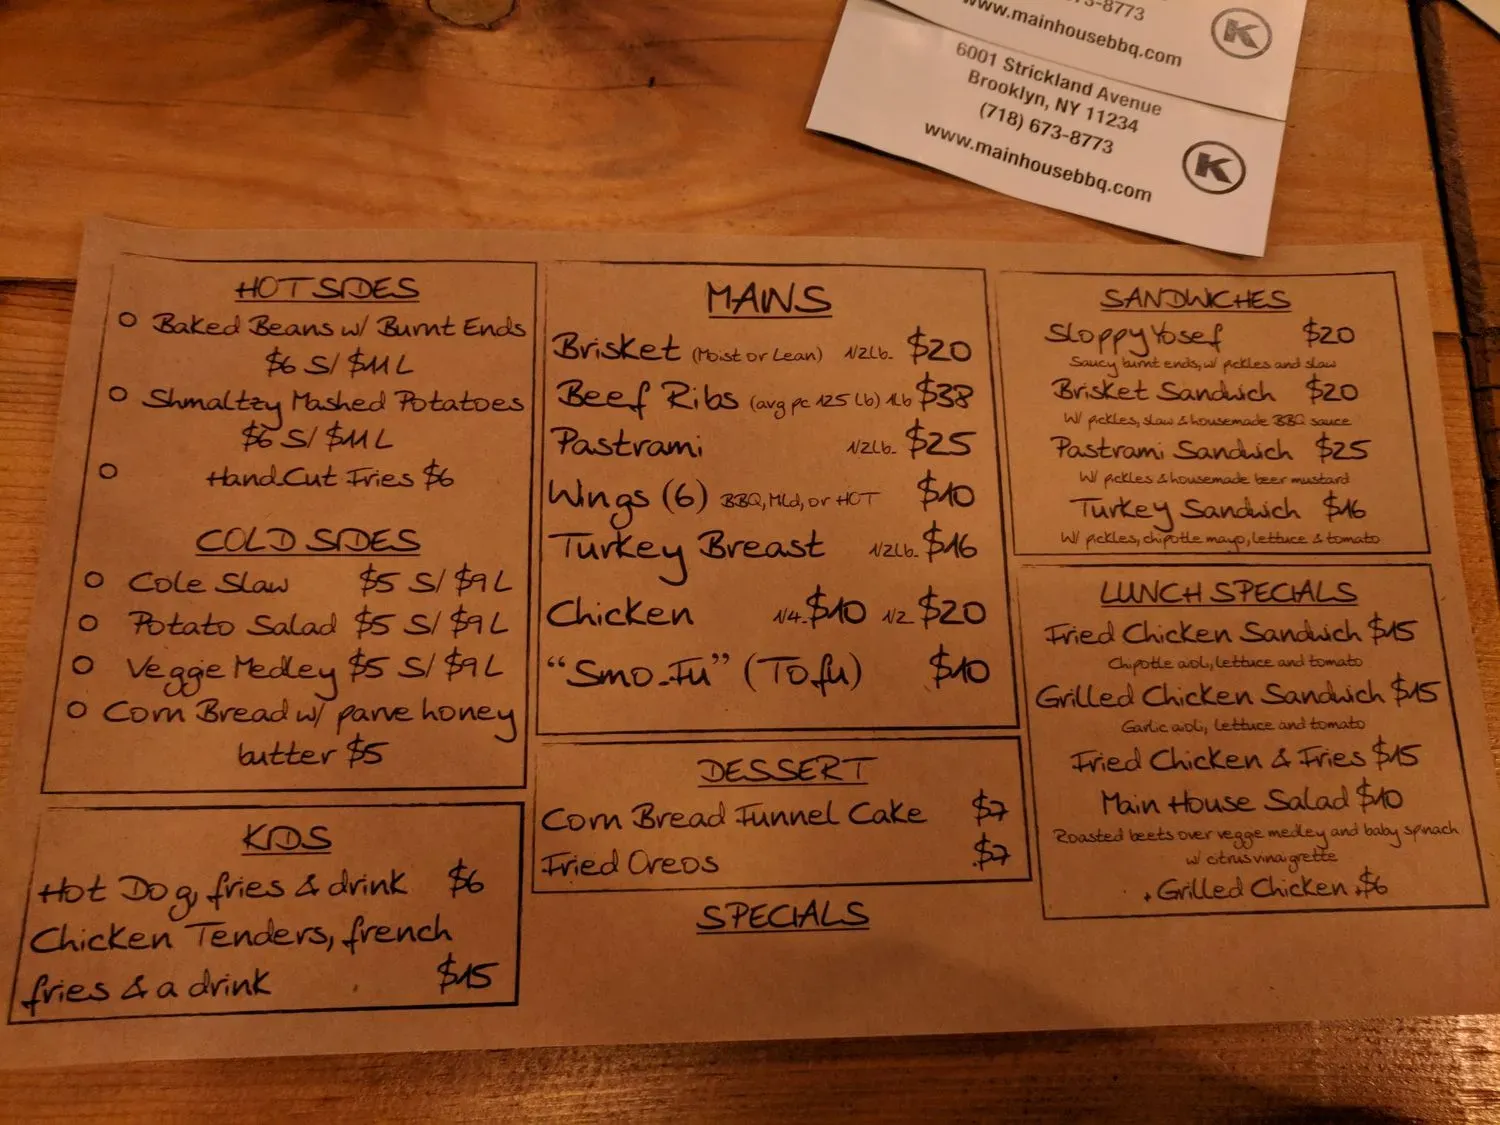 73-8773
www.mainhousebbq.com
K
6001 Strickland Avenue
Brooklyn, NY 11234
(718) 673-8773
www.mainhousebbq.com
K
HOT SIDES
Baked Beans w/ Burnt Ends
$6 S/ $11 L
Shmaltzy Mashed Potatoes
$6 S/ $11 L
Hand-Cut Fries $6
COLD SIDES
Cole Slaw $5 S/ $9 L
Potato Salad $5 S/ $9 L
Veggie Medley $5 S/ $9 L
Corn Bread w/ parve honey
butter $5
KIDS
Hot Dog, fries & drink $6
Chicken Tenders, french
fries & a drink $15
MAINS
Brisket (Moist or Lean) 1/2lb. $20
Beef Ribs (avg pc 1.25 lb) 1lb $38
Pastrami 1/2lb. $25
Wings (6) BBQ, Mild, or HOT $10
Turkey Breast 1/2lb. $16
Chicken 1/4.$10 1/2 $20
"Smo-Fu" (Tofu) $10
DESSERT
Corn Bread Funnel Cake $7
Fried Oreos $7
SPECIALS
SANDWICHES
Sloppy Yosef $20
Saucy burnt ends, w/ pickles and slaw
Brisket Sandwich $20
W/ pickles, slaw & housemade BBQ sauce
Pastrami Sandwich $25
W/ pickles & housemade beer mustard
Turkey Sandwich $16
W/ pickles, chipotle mayo, lettuce & tomato
LUNCH SPECIALS
Fried Chicken Sandwich $15
Chipotle aioli, lettuce and tomato
Grilled Chicken Sandwich $15
Garlic aioli, lettuce and tomato
Fried Chicken & Fries $15
Main House Salad $10
Roasted beets over veggie medley and baby spinach
w/ citrus vinaigrette
+ Grilled Chicken +$6